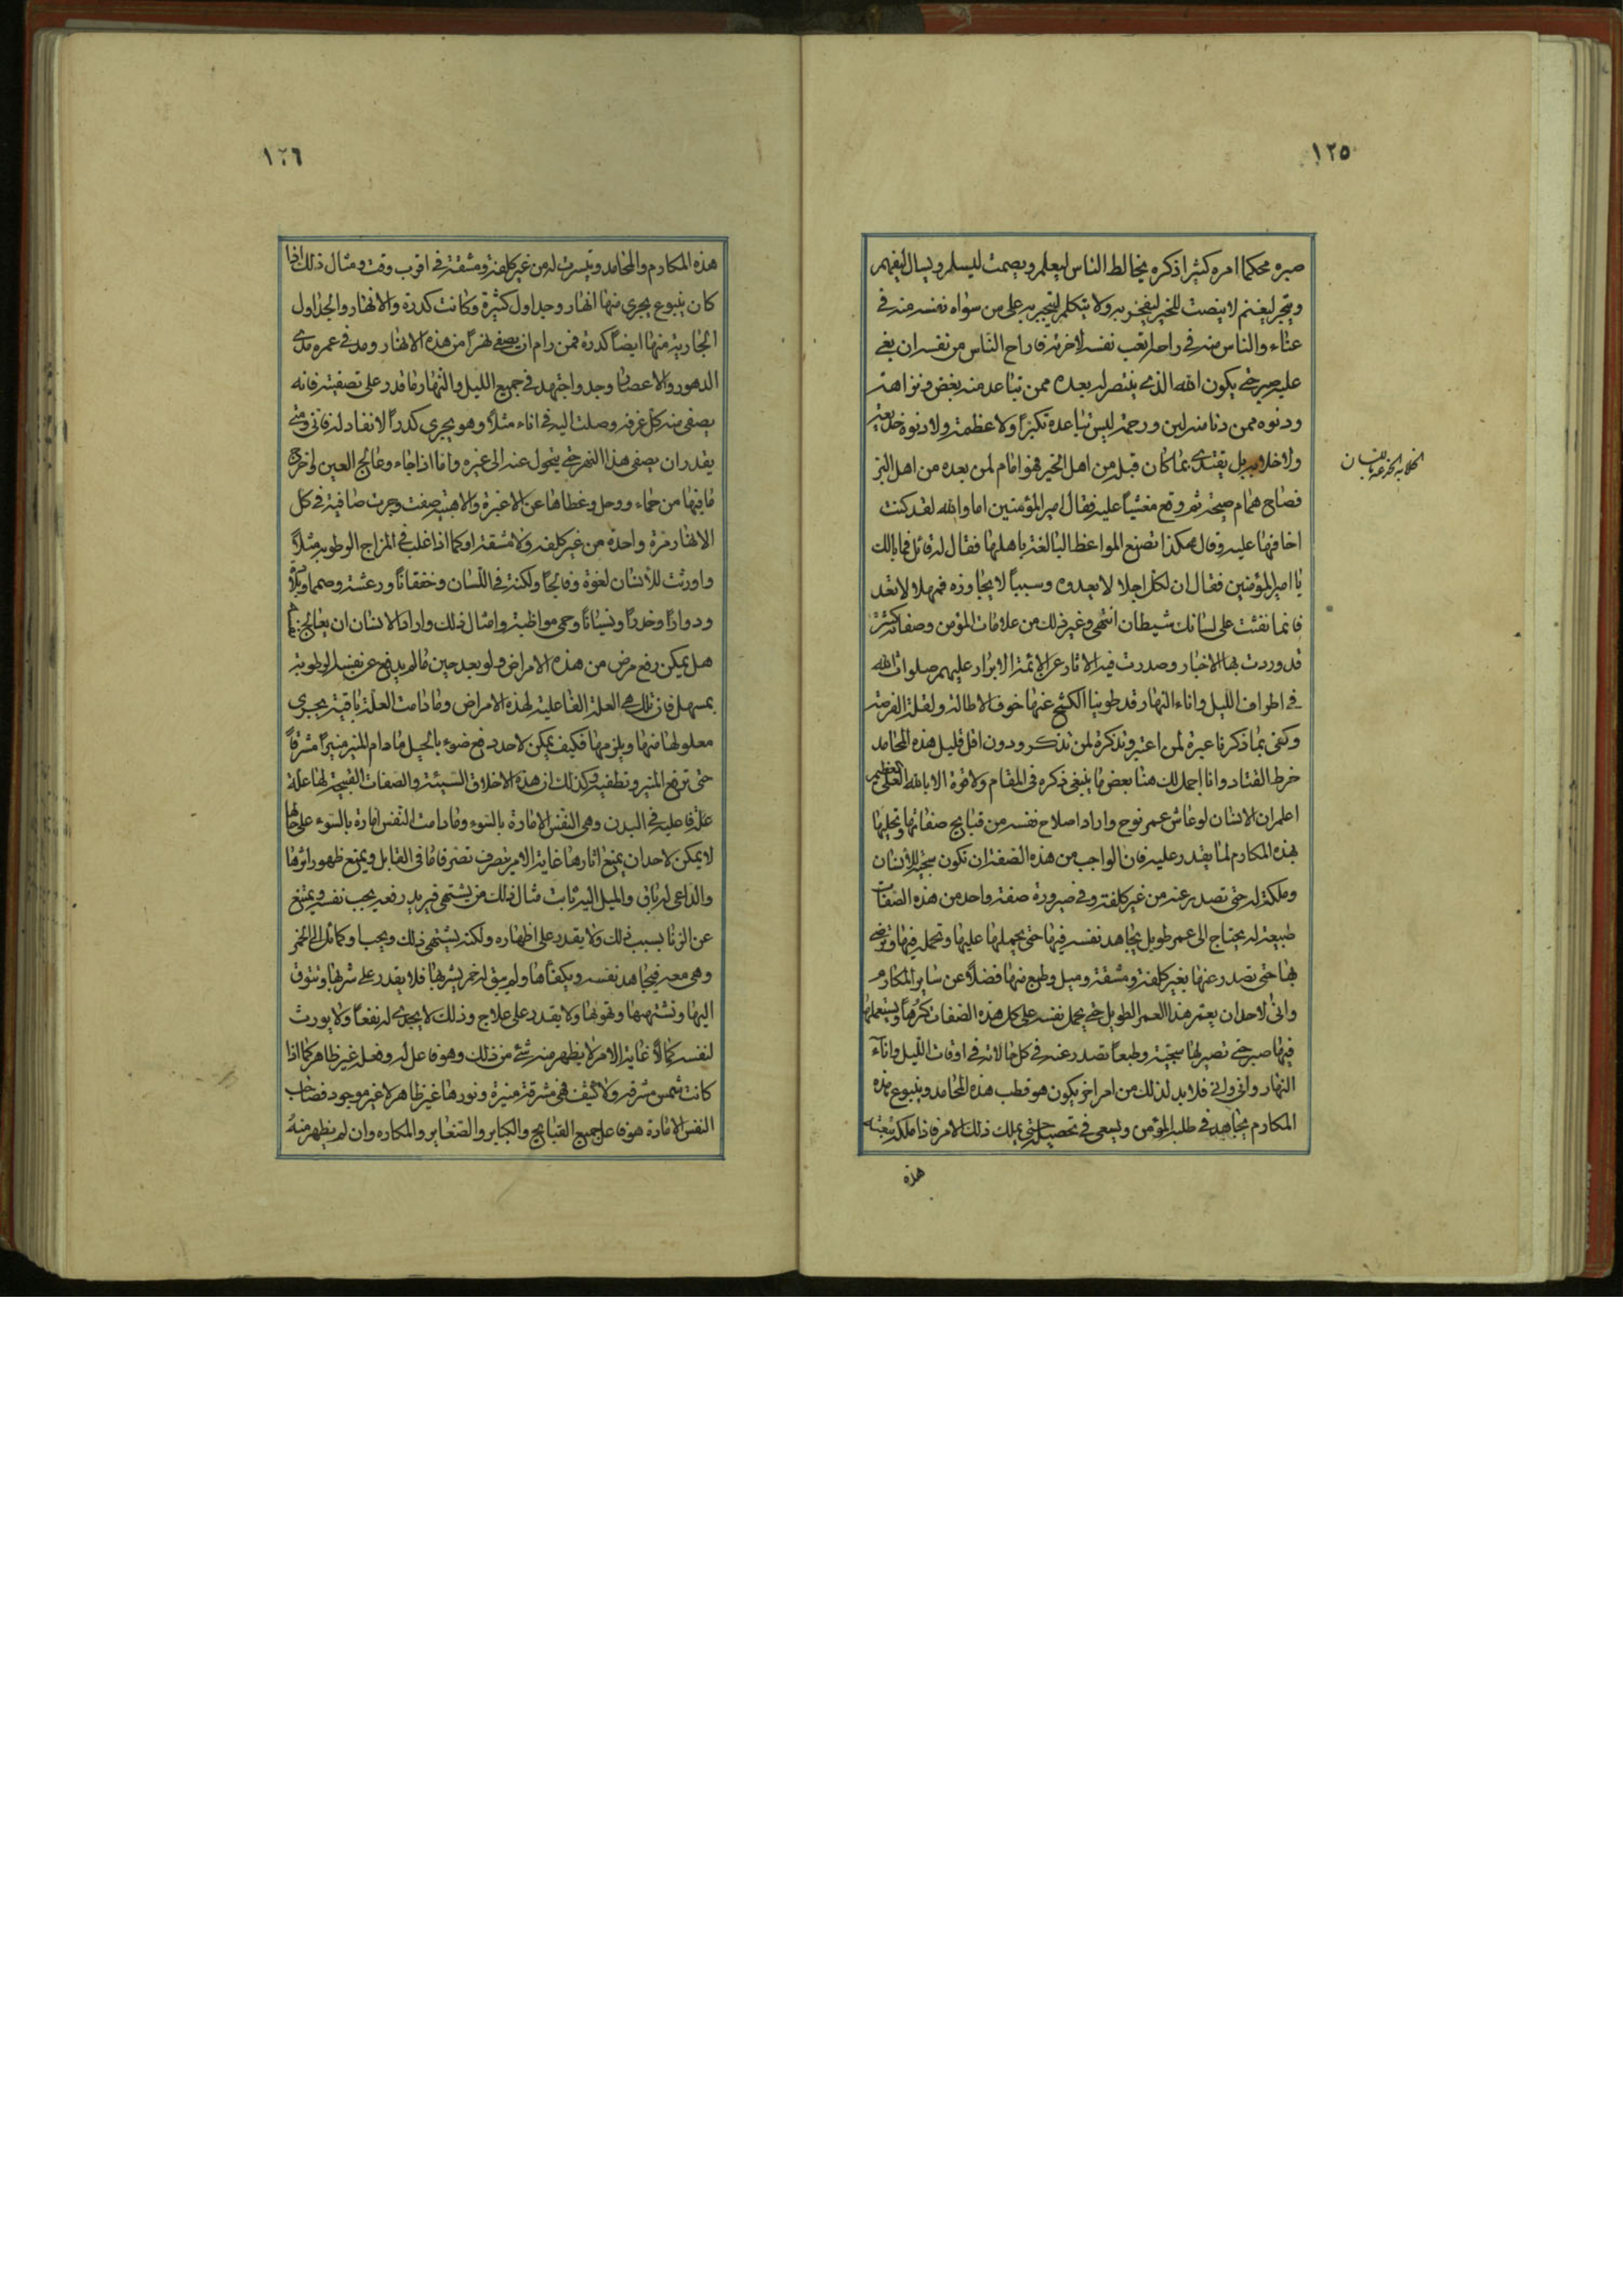 ١٢٥
صبره محكما امره كثيرا ذكره يخالط الناس ليعلم ويصمت ليسلم ويسال ليفهم
ويتجر ليغنم لا ينصت للخير ليفخر به ولا يتكلم ليتجبر به على من سواه نفسه منه في
عناء والناس منه في راحة اتعب نفسه لاخرته فاراح الناس من نفسه ان بغى
عليه صبر حتى يكون الله الذي ينتصر له بعده ممن تباعد منه بغض ونزاهة
ودنوه ممن دنا منه لين ورحمة ليس تباعده تكبرًا ولا عظمة ولا دنوه خديعة
ولا خلابة بل يقتدي بما كان قبله من اهل الخير فهو امام لمن بعده من اهل البر
فصاح همام صيحة ثم وقع مغشيًا عليه فقال امير المؤمنين اما والله لقد كنت
اخافها عليه وقال هكذا تصنع المواعظ البالغة باهلها فقال له قائل فما بالك
يا امير المؤمنين فقال ان لكل اجلا لا يعدوه وسببًا لا يجاوزه فمهلا لا تعد
فانما نفث على لسانك شيطان انتهى وغير ذلك من علامات المؤمن وصفاته كثيرة
قد وردت بها الاخبار وصدرت فيه الاثار عن الائمة الابرار عليهم صلوات الله
في اطراف الليل واناء النهار قد طوينا الكشح عنها خوف الاطالة ولقلة الفرصة
وكفى بما ذكرنا عبرة لمن اعتبر وتذكرة لمن تذكر ودون اقل قليل هذه المحامد
خرط القتاد وانا اجمل لك هنا بعض ما ينبغي ذكره في المقام ولا قوة الا بالله العلي العظيم
اعلم ان الانسان لو عاش عمر نوح واراد اصلاح نفسه من قبايح صفاتها وتحليها
بهذه المكارم لما يقدر عليه فان الواجب من هذه الصفة ان تكون سجية للانسان
وملكة له حتى تصدر عنه من غير كلفة وفي صيرورة صفة واحد من هذه الصفات
طبيعة له يحتاج الى عمر طويل يجاهد نفسه فيها حتى يحملها عليها وتحمله فيها وترضى
بها حتى تصدر عنها بغير كلفة ومشقة وميل وطبع منها فضلًا عن ساير المكارم
وانى لاحد ان يعمر هذا العمر الطويل حتى يحمل نفسه على كل هذه الصفات كرهًا ويستعملها
فيها صبر حتى تصير لها سجية وطبعًا تصدر عنه في كل حالاته في اوقات الليل واناء
النهار وانى وانى فلا بد لذلك من امر اخر يكون هو قطب هذه المحامد وينبوع هذه
المكارم يجاهد في طلبه المؤمن ويسعى في تحصيله حتى يملك ذلك الامر فاذا ملكه تبعته
هذه
الخلابة الخدعة باللسان
١٢٦
هذه المكارم والمحامد وتيسرت له من غير كلفة ومشقة في اقرب وقت ومثال ذلك اذا
كان ينبوع يجري منها انهار وجداول كثيرة وكانت كدرة والانهار والجداول
الجارية منها ايضًا كدرة فمن رام ان يصفي نهرًا من هذه الانهار ومد في عمره مدى
الدهور والاعصار وجد واجتهد في جميع الليل والنهار ما قدر على تصفيته فانه
يصفى منه كل غرفة وصلت اليه في اناء مثلًا وهو يجري كدرًا لا نفاد له فانى ومتى
يقدر ان يصفى هذا النهر حتى يتحول عنه الى غيره واما اذا جاء وعالج العين واخرج
ما فيها من حماء ووحل وغطاها عن الاغبرة والاهبية صفت وجرت صافية في كل
الانهار مرة واحدة من غير كلفة ولا مشقة او كما اذا غلب في المزاج الرطوبة مثلًا
واورثت للانسان لقوة وفالجًا ولكنة في اللسان وخفقانًا ورعشة وصمما
ودوارًا وخدرًا ونسيانًا وحمى مواظبة وامثال ذلك واراد الانسان ان يعالجه
هل يمكن رفع مرض من هذه الامراض ولو بعد حين ما لم يدفع عن نفسه الرطوبة
بمسهل فان تلك هي العلة الفاعلية لهذه الامراض وما دامت العلة باقية يجري
معلولها منها ويلزمها فكيف يمكن لاحد دفع ضوء بالحيل ما دام المنير منيرًا مشرقًا
حتى ترفع المنير وتطفيه وكذلك ان هذه الاخلاق السيئة والصفات القبيحة لها علة
علة فاعلية في البدن وهي النفس الامارة بالسوء وما دامت النفس امارة بالسوء على حالها
لا يمكن لاحد ان يمنع اثارها غاية الامر يتصرف تصرفًا ما في القابل ويمنع ظهور اثرها
والداعي له باق والميل اليه ثابت مثال ذلك من يشتهي فيريد رفعه يجب نفسه ويمتنع
عن الزنا بسبب ذلك ولا يقدر على اظهاره ولكنه يشتهي ذلك ويحب او كمائل الى الخمر
وهي معه فيجاهد نفسه ويكفاها ولم يبق له خمر يشربها فلا يقدر على شربها وتتوق
اليها وتشتهيها وتهويها ولا يقدر على علاج وذلك لا يجدي له نفعًا ولا يورث
لنفسه كمالًا غاية الامر لا يظهر منه شيء من ذلك وهو فاعل له وفعله غير ظاهر كما اذا
كانت شمس مشرقة ولا كثيف فهي مشرقة منيرة ونورها غير ظاهر لا غير موجود فصاحب
النفس الامارة هو فاعل جميع القبايح والكباير والصغاير والمكاره وان لم يظهر منه